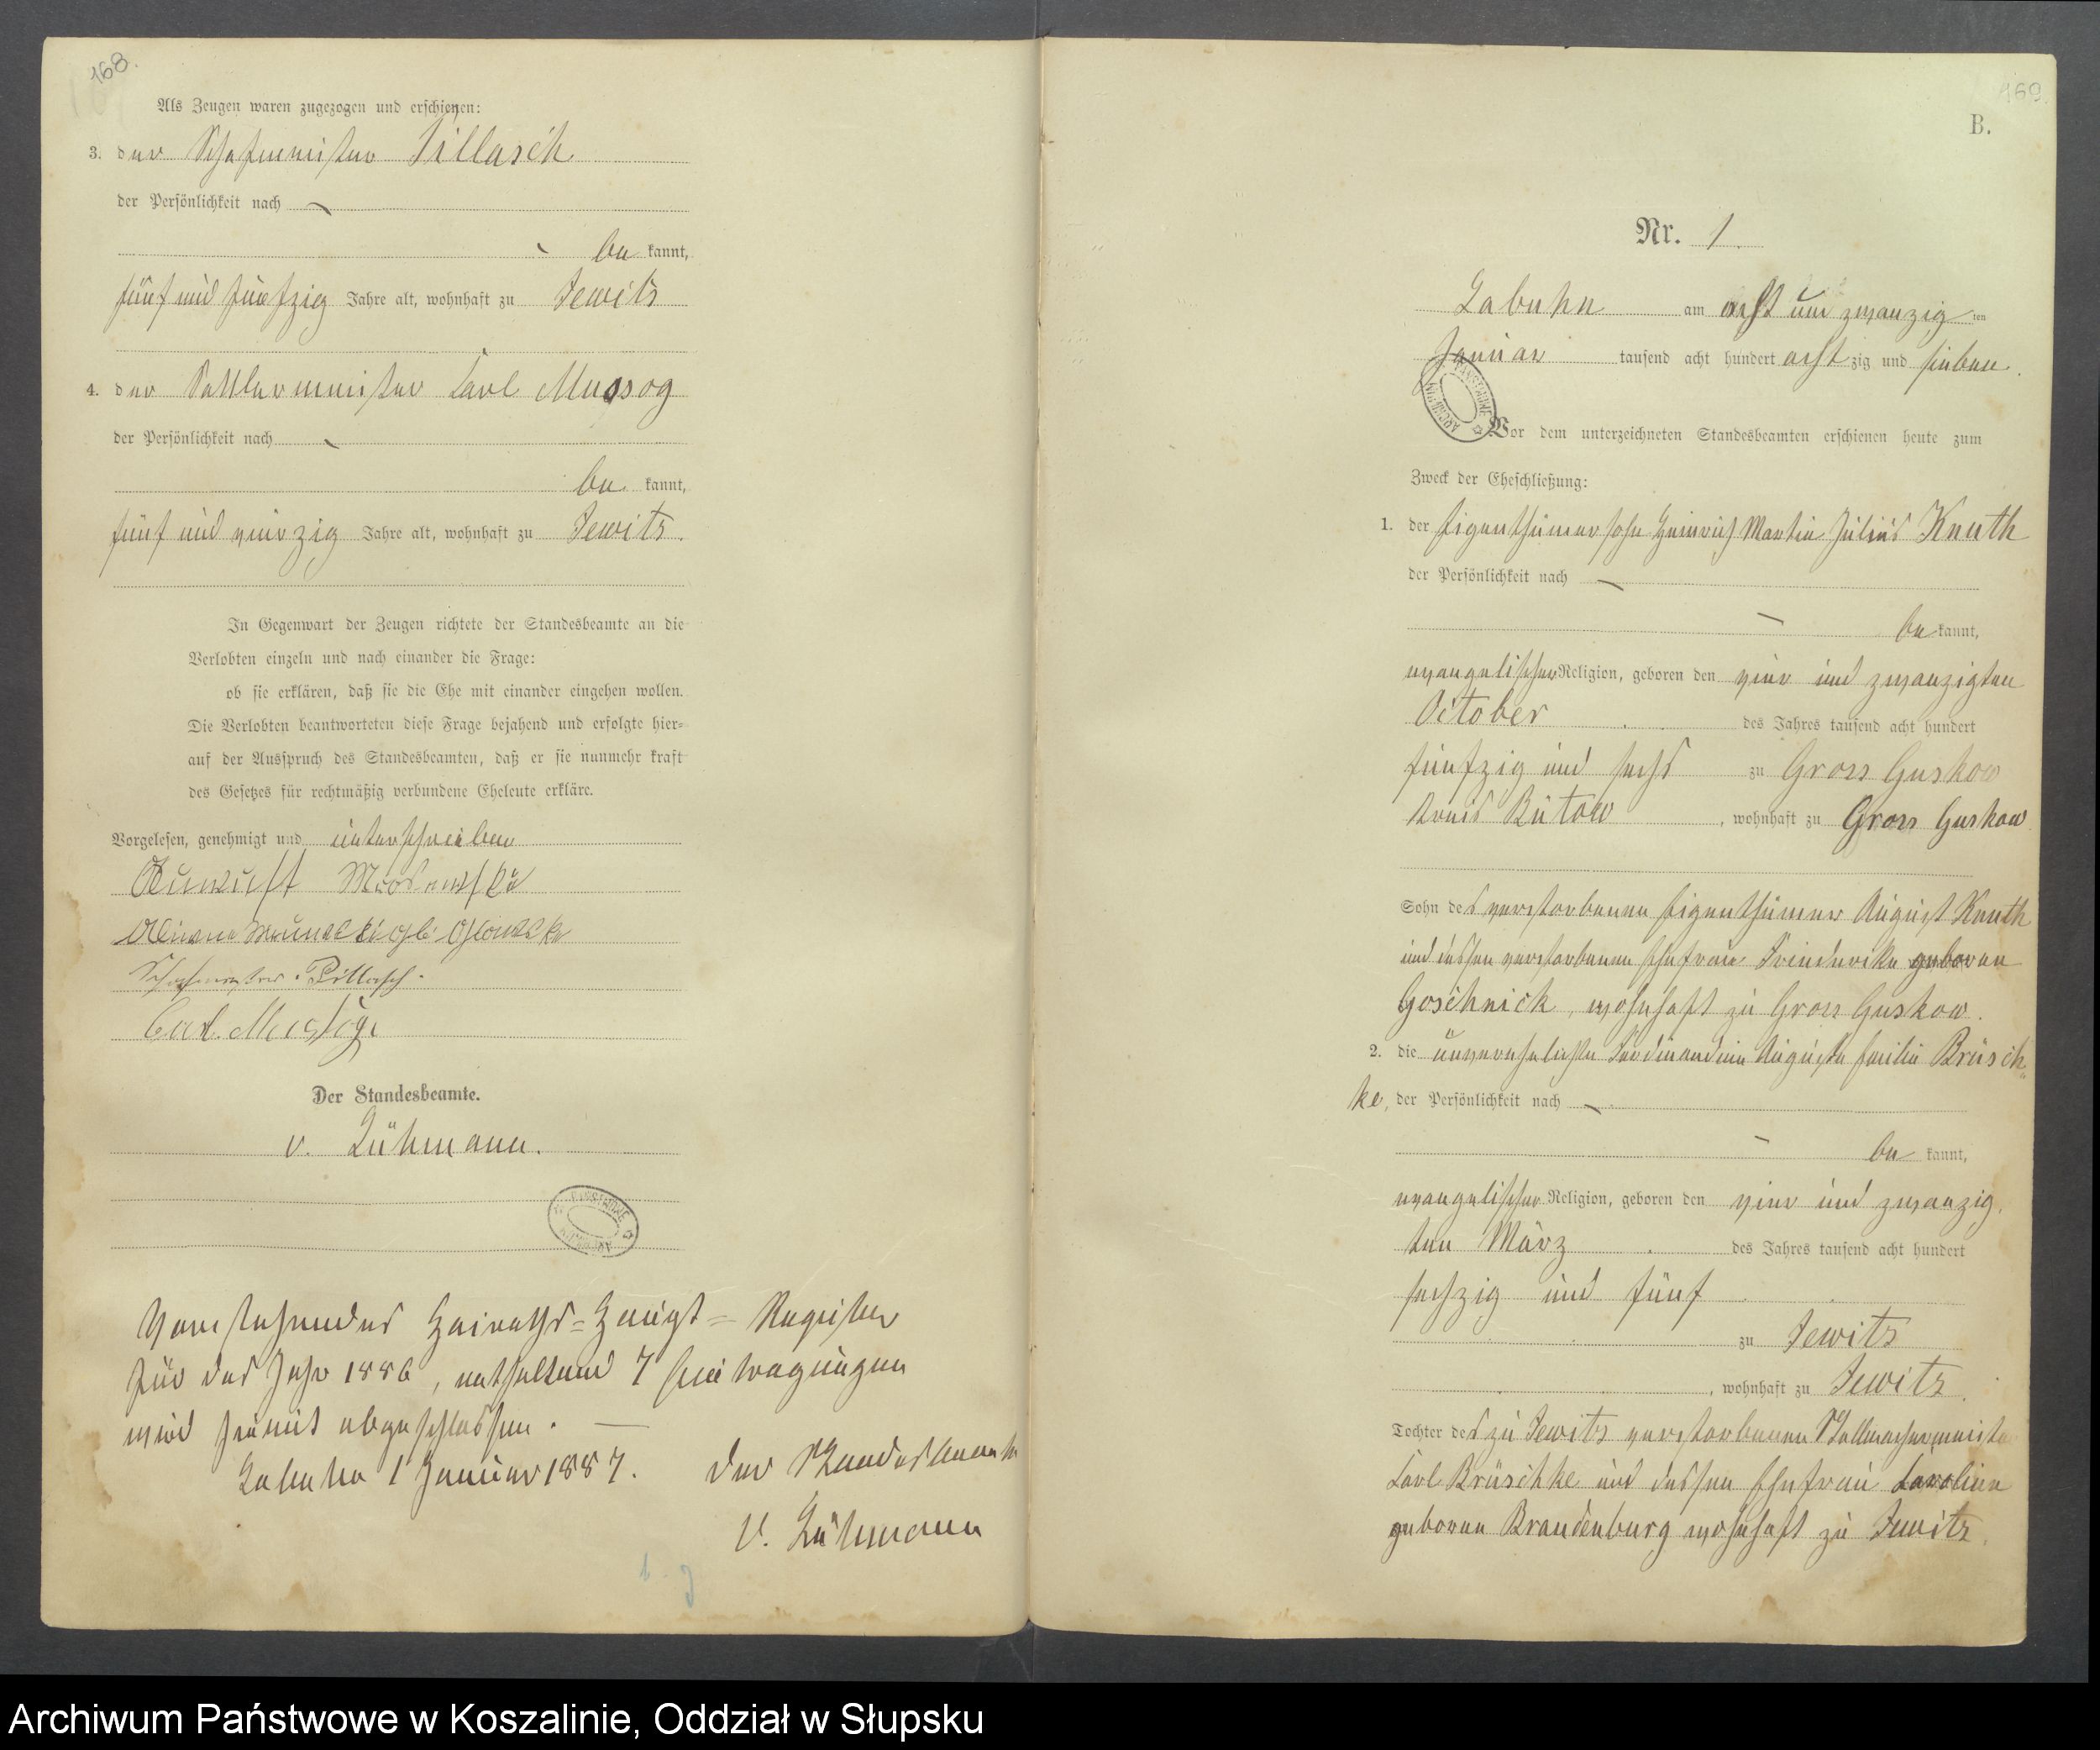 168.
Als Zeugen waren zugezogen und erschienen:
3. der Schafmeister Pillasch
der Persönlichkeit nach
be kannt,
fünf und fünfzig Jahre alt, wohnhaft zu Jewitz
4. der Sattlermeister Carl Mussog
der Persönlichkeit nach
be kannt,
fünf und vierzig Jahre alt, wohnhaft zu Jewitz.
In Gegenwart der Zeugen richtete der Standesbeamte an die
Verlobten einzeln und nach einander die Frage:
ob sie erklären, daß sie die Ehe mit einander eingehen wollen.
Die Verlobten beantworteten diese Frage bejahend und erfolgte hier=
auf der Ausspruch des Standesbeamten, daß er sie nunmehr kraft
des Gesetzes für rechtmäßig verbundene Eheleute erkläre.
Vorgelesen, genehmigt und unterschrieben
Schafmeister Pillasch.
Carl
Der Standesbeamte.
v. Lühmann.
Vorstehendes Heiraths=Haupt=Register
für das Jahr 1886, enthaltend 7 Eintragungen
wird hiermit abgeschlossen.
Labuhn 1 Januar 1887. Der Standesbeamte
v. Lühmann
169.
B.
Nr. 1.
Labuhn am acht und zwanzig ten
Januar tausend acht hundert acht zig und sieben.
Vor dem unterzeichneten Standesbeamten erschienen heute zum
Zweck der Eheschließung:
1. der Eigenthümersohn Heinrich Martin Julius Knuth
der Persönlichkeit nach
be kannt,
evangelischer Religion, geboren den vier und zwanzigten
October des Jahres tausend acht hundert
fünfzig und sechs zu Gross Guskow
Kreis Bütow, wohnhaft zu Gross Guskow
Sohn des verstorbenen Eigenthümers August Knuth
und dessen verstorbenen Ehefrau Friederike geboren
Goschnick, wohnhaft zu Gross Guskow.
2. die unverehelichte Ferdinandine Auguste Emilie Brüsch=
ke, der Persönlichkeit nach
be kannt,
evangelischer Religion, geboren den vier und zwanzig.
ten März des Jahres tausend acht hundert
sechzig und fünf
zu Jewitz
, wohnhaft zu Jewitz.
Tochter des zu Jewitz verstorbenen Stellmachermeister
Carl Brüschke und dessen Ehefrau Caroline
geboren Brandenburg wohnhaft zu Jewitz.
Archiwum Państwowe w Koszalinie, Oddział w Słupsku